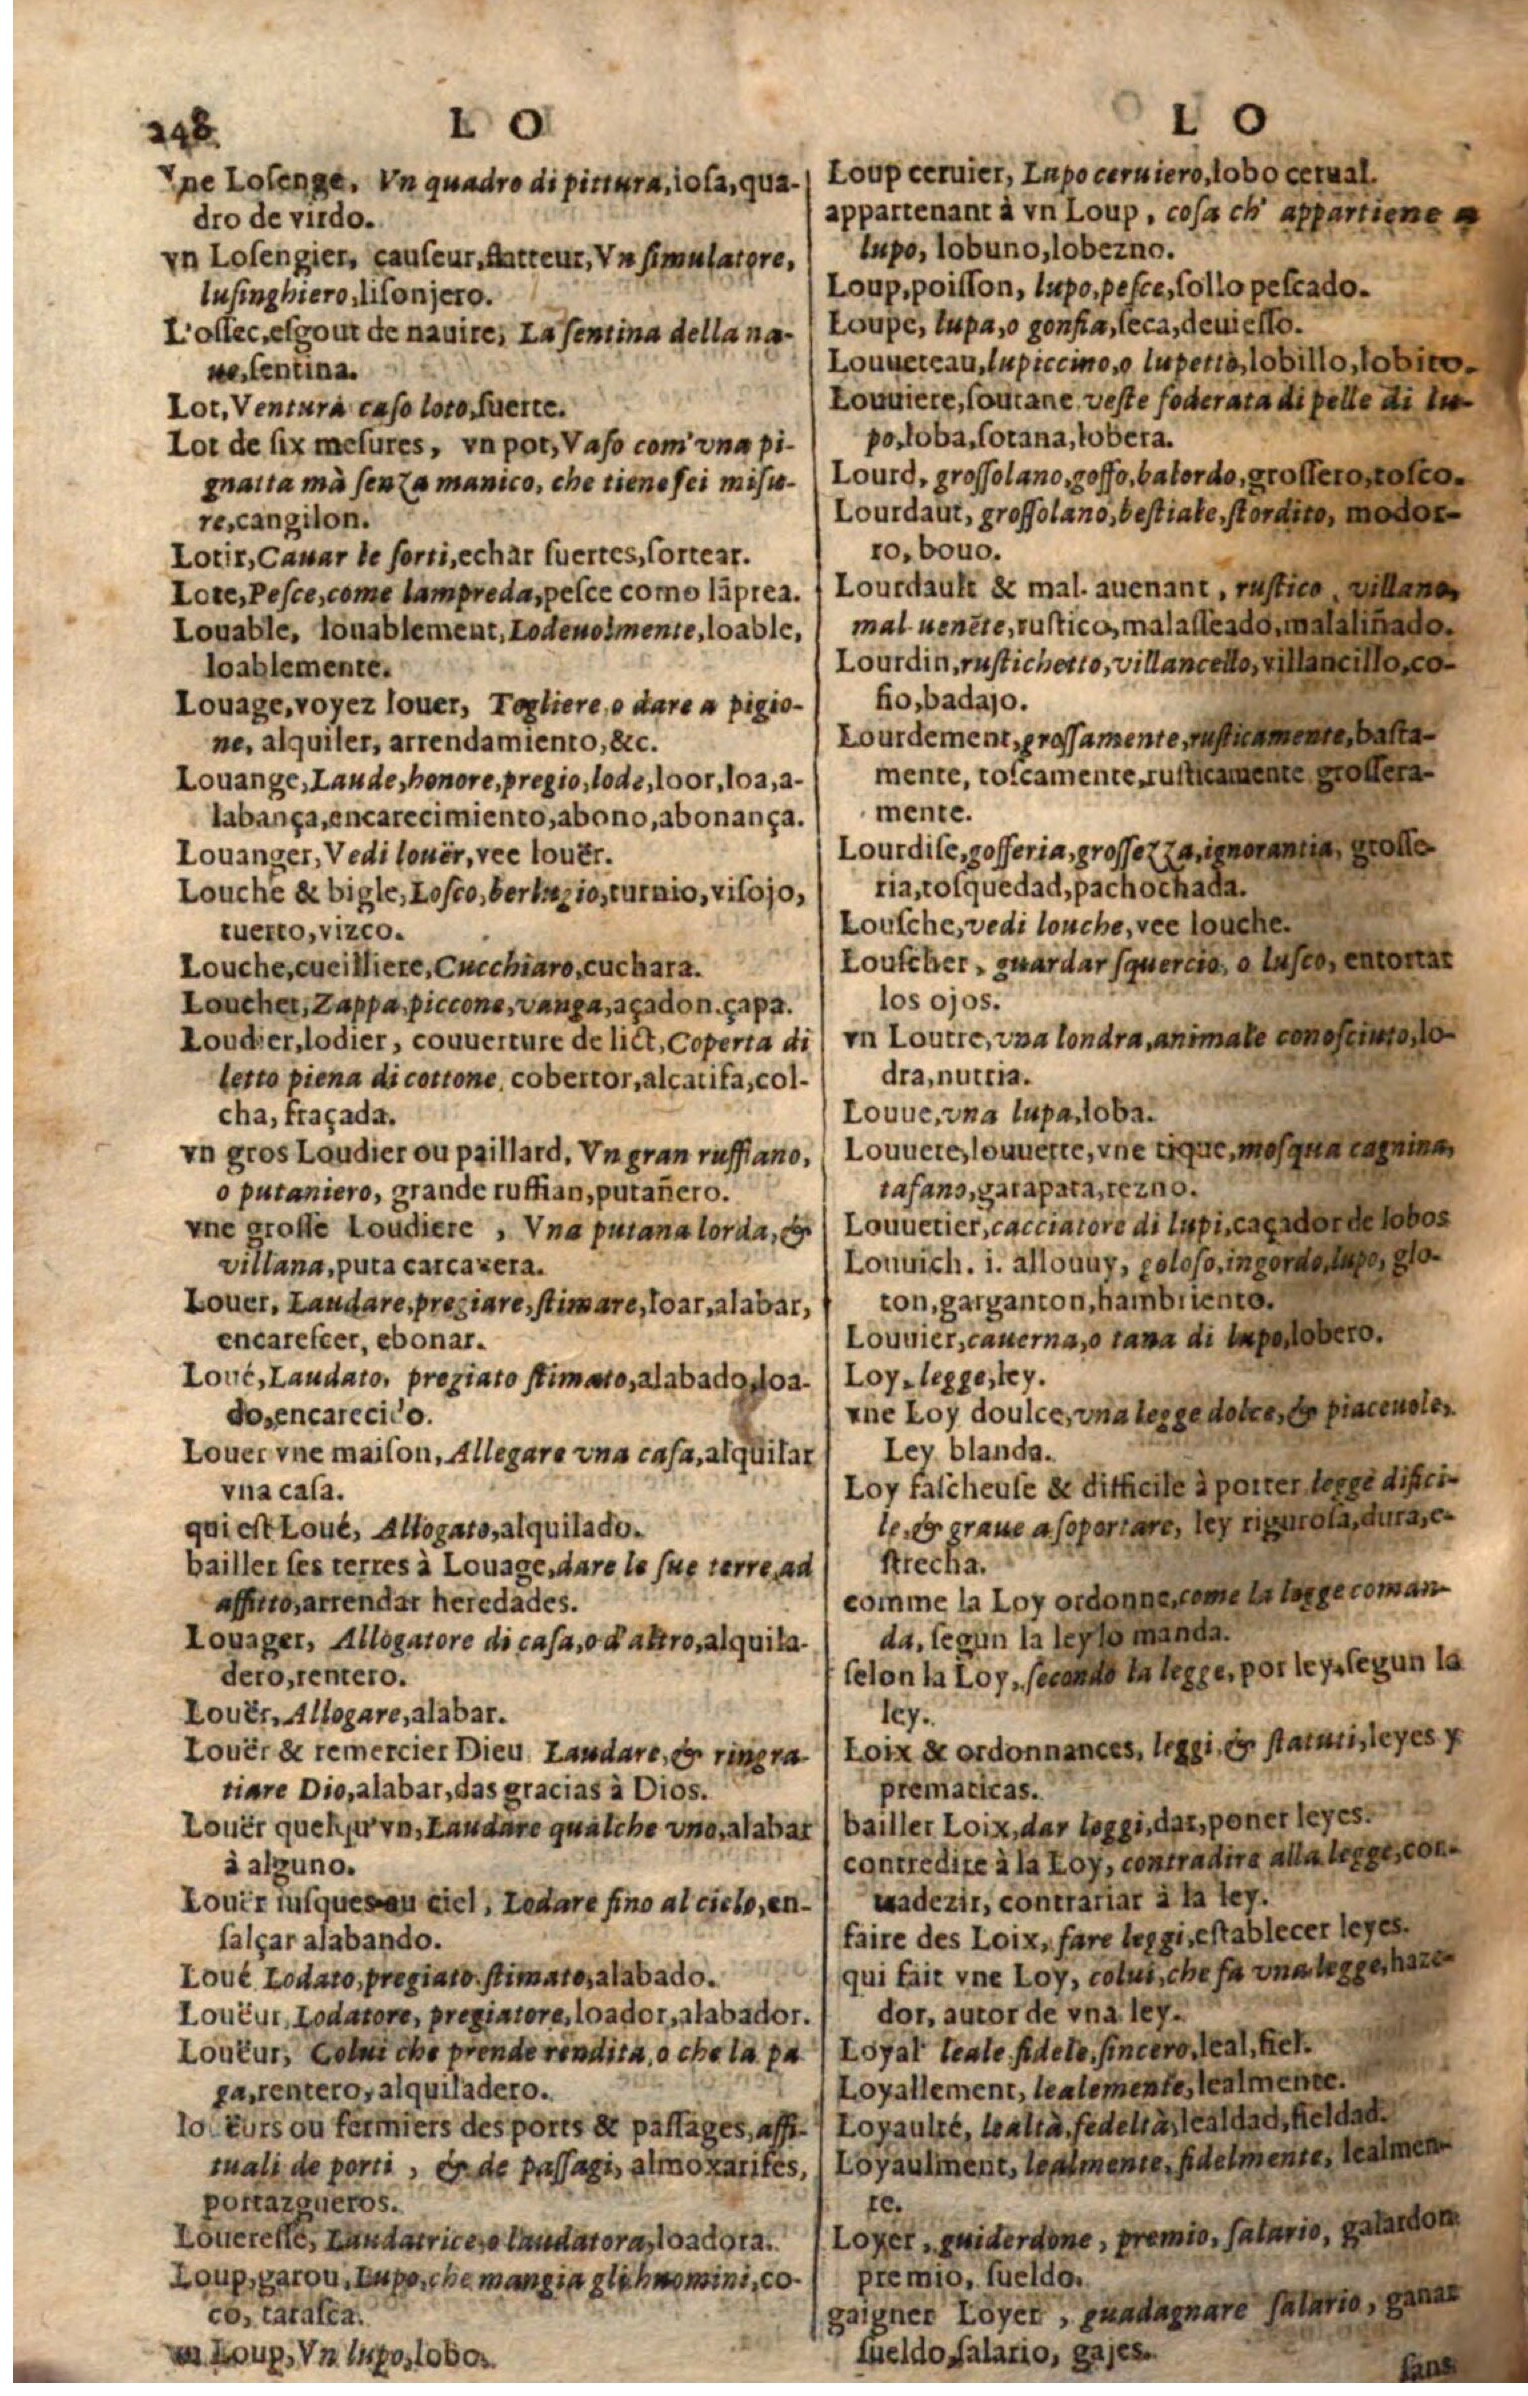 248
L O
Vne Losenge, Vn quadro di pittura, iosa, qua-
dro de virdo.
vn Losengier, causeur, flatteur, Vn simulatore,
lusinghiero, lisonjero.
L'ossec, esgout de nauire, La sentina della na-
ue, sentina.
Lot, Ventura caso loto, suerte.
Lot de six mesures, vn pot, Vaso com' vna pi-
gnatta mà senza manico, che tiene sei misu-
re, cangilon.
Lotir, Cauar le sorti, echar suertes, sortear.
Lote, Pesce, come lampreda, pesce como lãprea.
Louable, louablement, Lodeuolmente, loable,
loablemente.
Louage, voyez louer, Togliere, o dare a pigio-
ne, alquiler, arrendamiento, &c.
Louange, Laude, honore, pregio, lode, loor, loa, a-
labança, encarecimiento, abono, abonança.
Louanger, Vedi louër, vee louër.
Louche & bigle, Losco, berluzio, turnio, visojo,
tuerto, vizco.
Louche, cueilliere, Cucchiaro, cuchara.
Louchet, Zappa, piccone, vanga, açadon, çapa.
Loudier, lodier, couuerture de lict, Coperta di
letto piena di cottone, cobertor, alcatifa, col-
cha, fraçada.
vn gros Loudier ou paillard, Vn gran ruffiano,
o putaniero, grande ruffian, putañero.
vne grosse Loudiere, Vna putana lorda, &
villana, puta carcavera.
Louer, Laudare, pregiare, stimare, loar, alabar,
encarescer, ebonar.
Loué, Laudato, pregiato stimato, alabado, loa-
do, encarecido.
Louer vne maison, Allegare vna casa, alquilar
vna casa.
qui est Loué, Allogato, alquilado.
bailler ses terres à Louage, dare le sue terre ad
affitto, arrendar heredades.
Louager, Allogatore di casa, o d'altro, alquila-
dero, rentero.
Louër, Allogare, alabar.
Louër & remercier Dieu Laudare, & ringra-
tiare Dio, alabar, das gracias à Dios.
Louër quelqu'vn, Laudare qualche vno, alabar
à alguno.
Louër iusques au ciel, Lodare fino al cielo, en-
salçar alabando.
Loué Lodato, pregiato, stimato, alabado.
Louëur, Lodatore, pregiatore, loador, alabador.
Louëur, Colui che prende rendita, o che la pa
ga, rentero, alquiladero.
lo ëurs ou fermiers des ports & passages, affi-
tuali de porti, & de passagi, almoxarifes,
portazgueros.
Loueresse, Laudatrice, o laudatora, loadora.
Loup, garou, Lupo, che mangia gli huomini, co-
co, tarasca.
vn Loup, Vn lupo, lobo.
L O
Loup ceruier, Lupo ceruiero, lobo cerual.
appartenant à vn Loup, cosa ch' appartiene a
lupo, lobuno, lobezno.
Loup, poisson, lupo, pesce, sollo pescado.
Loupe, lupa, o gonfia, seca, deuiesso.
Louueteau, lupiccino, o lupetto, lobillo, lobito.
Louuiere, soutane, veste foderata di pelle di lu-
po, loba, sotana, lobera.
Lourd, grossolano, goffo, balordo, grossero, tosco.
Lourdaut, grossolano, bestiale, stordito, modor-
ro, bouo.
Lourdault & mal-auenant, rustico, villano,
mal uenẽte, rustico, malasseado, malaliñado.
Lourdin, rustichetto, villancello, villancillo, co-
fio, badajo.
Lourdement, grossamente, rusticamente, basta-
mente, toscamente, rusticamente grossera-
mente.
Lourdise, gofferia, grossezza, ignorantia, grosse-
ria, tosquedad, pachochada.
Lousche, vedi louche, vee louche.
Louscher, guardar squercio, o lusco, entortar
los ojos.
vn Loutre, vna londra, animale conosciuto, lo-
dra, nutria.
Louue, vna lupa, loba.
Louuete, louuette, vne tique, mosqua cagnina,
tafano, garapata, rezno.
Louuetier, cacciatore di lupi, caçador de lobos
Louuich. i. allouuy, goloso, ingordo, lupo, glo-
ton, garganton, hambriento.
Louuier, cauerna, o tana di lupo, lobero.
Loy, legge, ley.
vne Loy doulce, vna legge dolce, & piaceuole,
Ley blanda.
Loy fascheuse & difficile à porter legge difici-
le, & graue a soportare, ley rigurosa, dura, e-
strecha.
comme la Loy ordonne, come la legge coman-
da, segun la ley lo manda.
selon la Loy, secondo la legge, por ley, segun la
ley.
Loix & ordonnances, leggi, & statuti, leyes y
prematicas.
bailler Loix, dar leggi, dar, poner leyes.
contredire à la Loy, contradire alla legge, con-
tradezir, contrariar à la ley.
faire des Loix, fare leggi, establecer leyes.
qui fait vne Loy, colui, che fa vna legge, haze-
dor, autor de vna ley.
Loyal leale fidele, sincero, leal, fiel.
Loyallement, lealemente, lealmente.
Loyaulté, lealtà, fedeltà, lealdad, fieldad.
Loyaulment, lealmente, fidelmente, lealmen-
te.
Loyer, guiderdone, premio, salario, galardon
premio, sueldo.
gaigner Loyer, guadagnare salario, ganar
sueldo, salario, gajes.
sans